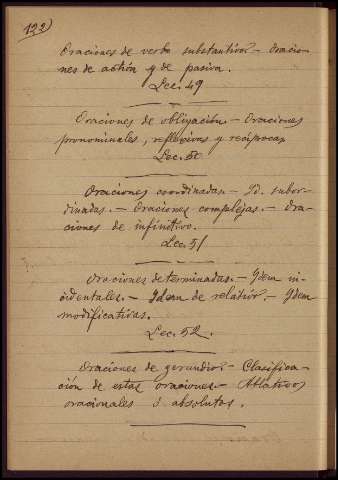 122)
Oraciones de verbo substantivo.- Oracio-
nes de acción y de pasiva.
Lec. 49
Oraciones de obligación.- Oraciones
pronominales, reflexivas y recíprocas
Lec. 50
Oraciones coordinadas.- Id. subor-
dinadas.- Oraciones complejas.- Ora-
ciones de infinitivo.
Lec. 51
Oraciones determinadas.- Idem in-
cidentales.- Idem de relativo.- Idem
modificativas.
Lec. 52.
Oraciones de gerundio.- Clasifica-
ción de estas oraciones.- Ablativos
oracionales ó absolutos.